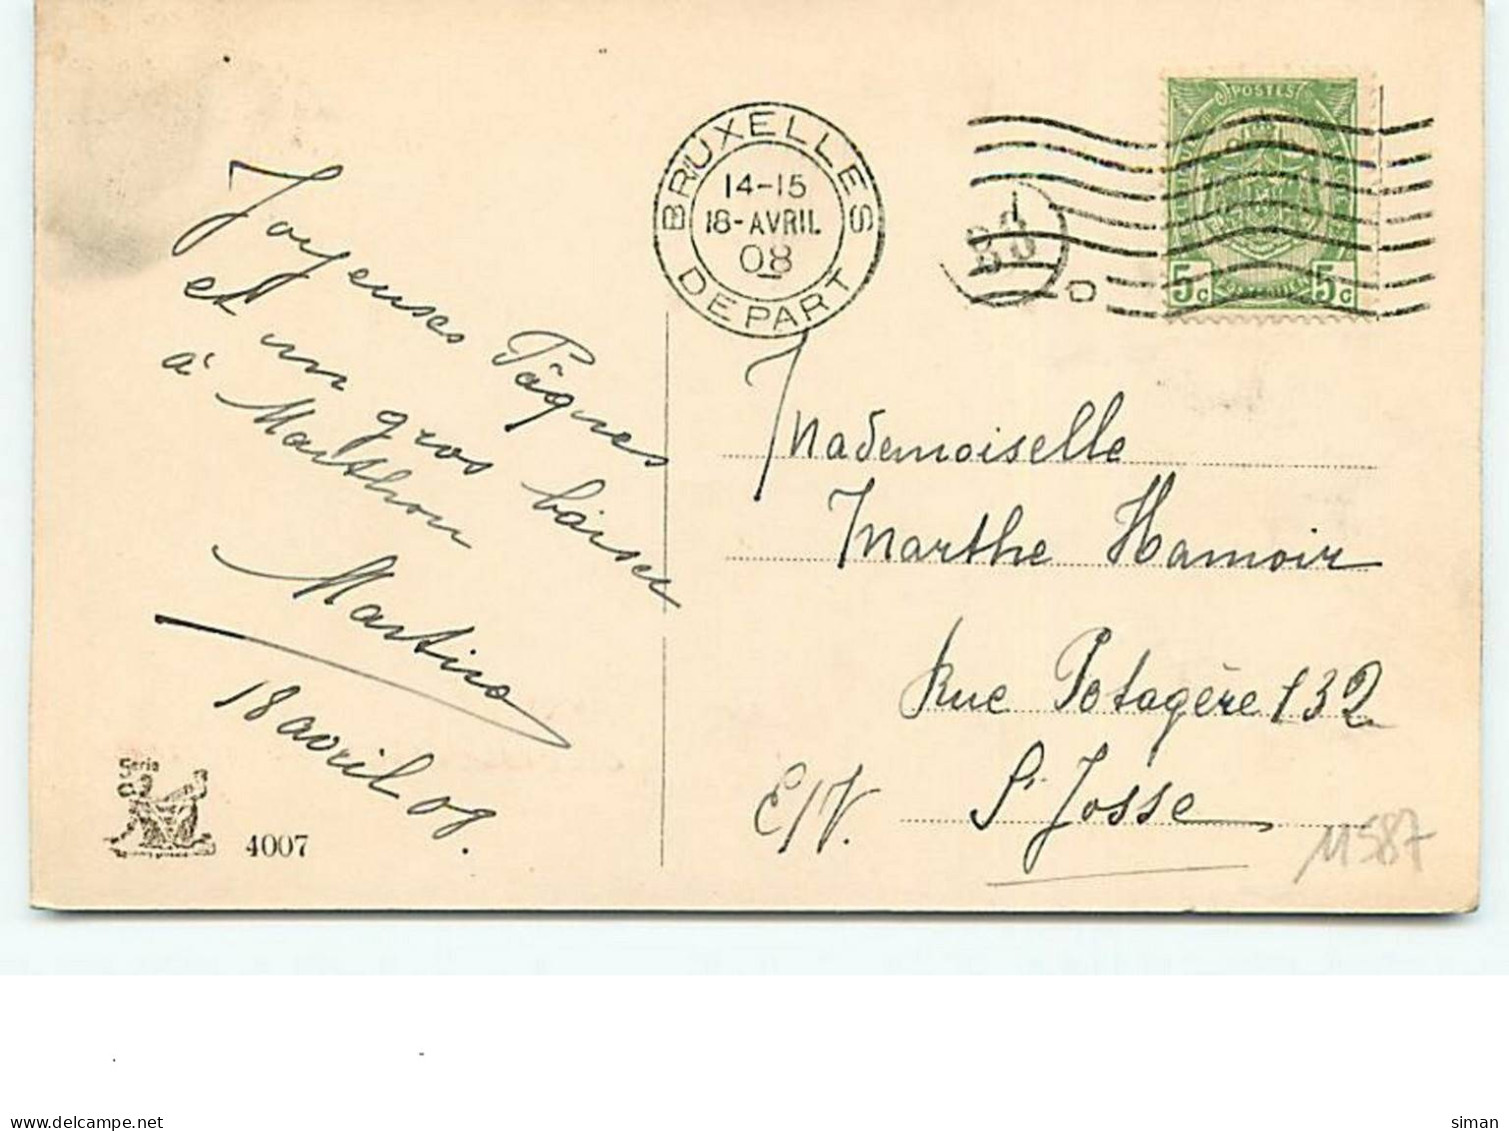 Joyeuses Pâques
et un gros baiser
à Marthon
18 avril 08.
Serie
4007
BRUXELLES
14-15
18-AVRIL
08
DEPART
1
B3
D
POSTES
5c 5c
Mademoiselle
Marthe Hamoir
Rue Potagère 132
E/V. St Josse
11587
delcampe.net
siman